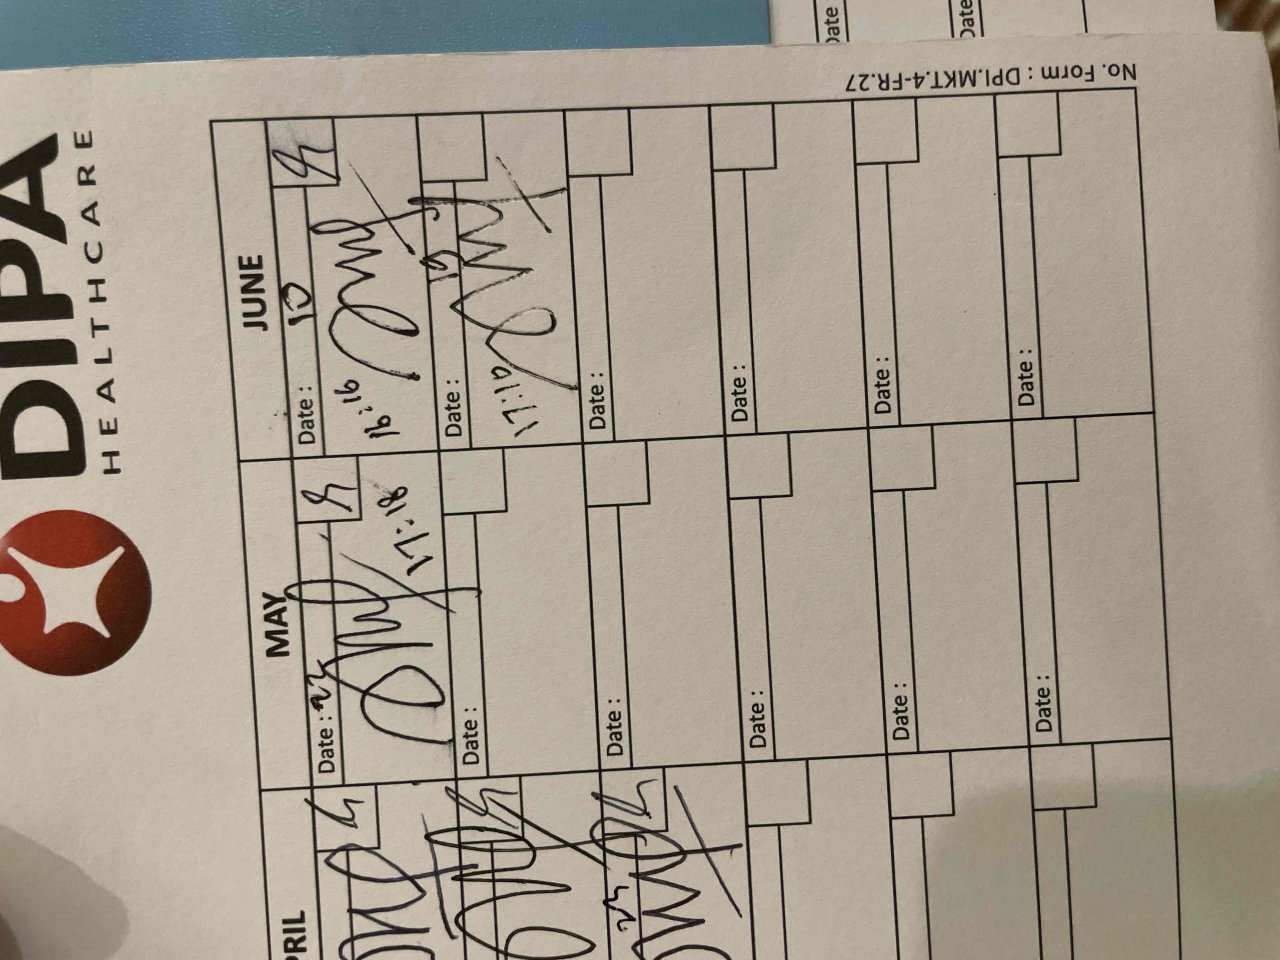 DIPA
HEALTHCARE
PRIL MAY JUNE
Date : 22 Date : 10
17:18 16:16
Date : Date : 19
17:10
Date : Date :
Date : Date :
Date : Date :
Date : Date :
No. Form : DPI.MKT.4-FR.27
Date
Date